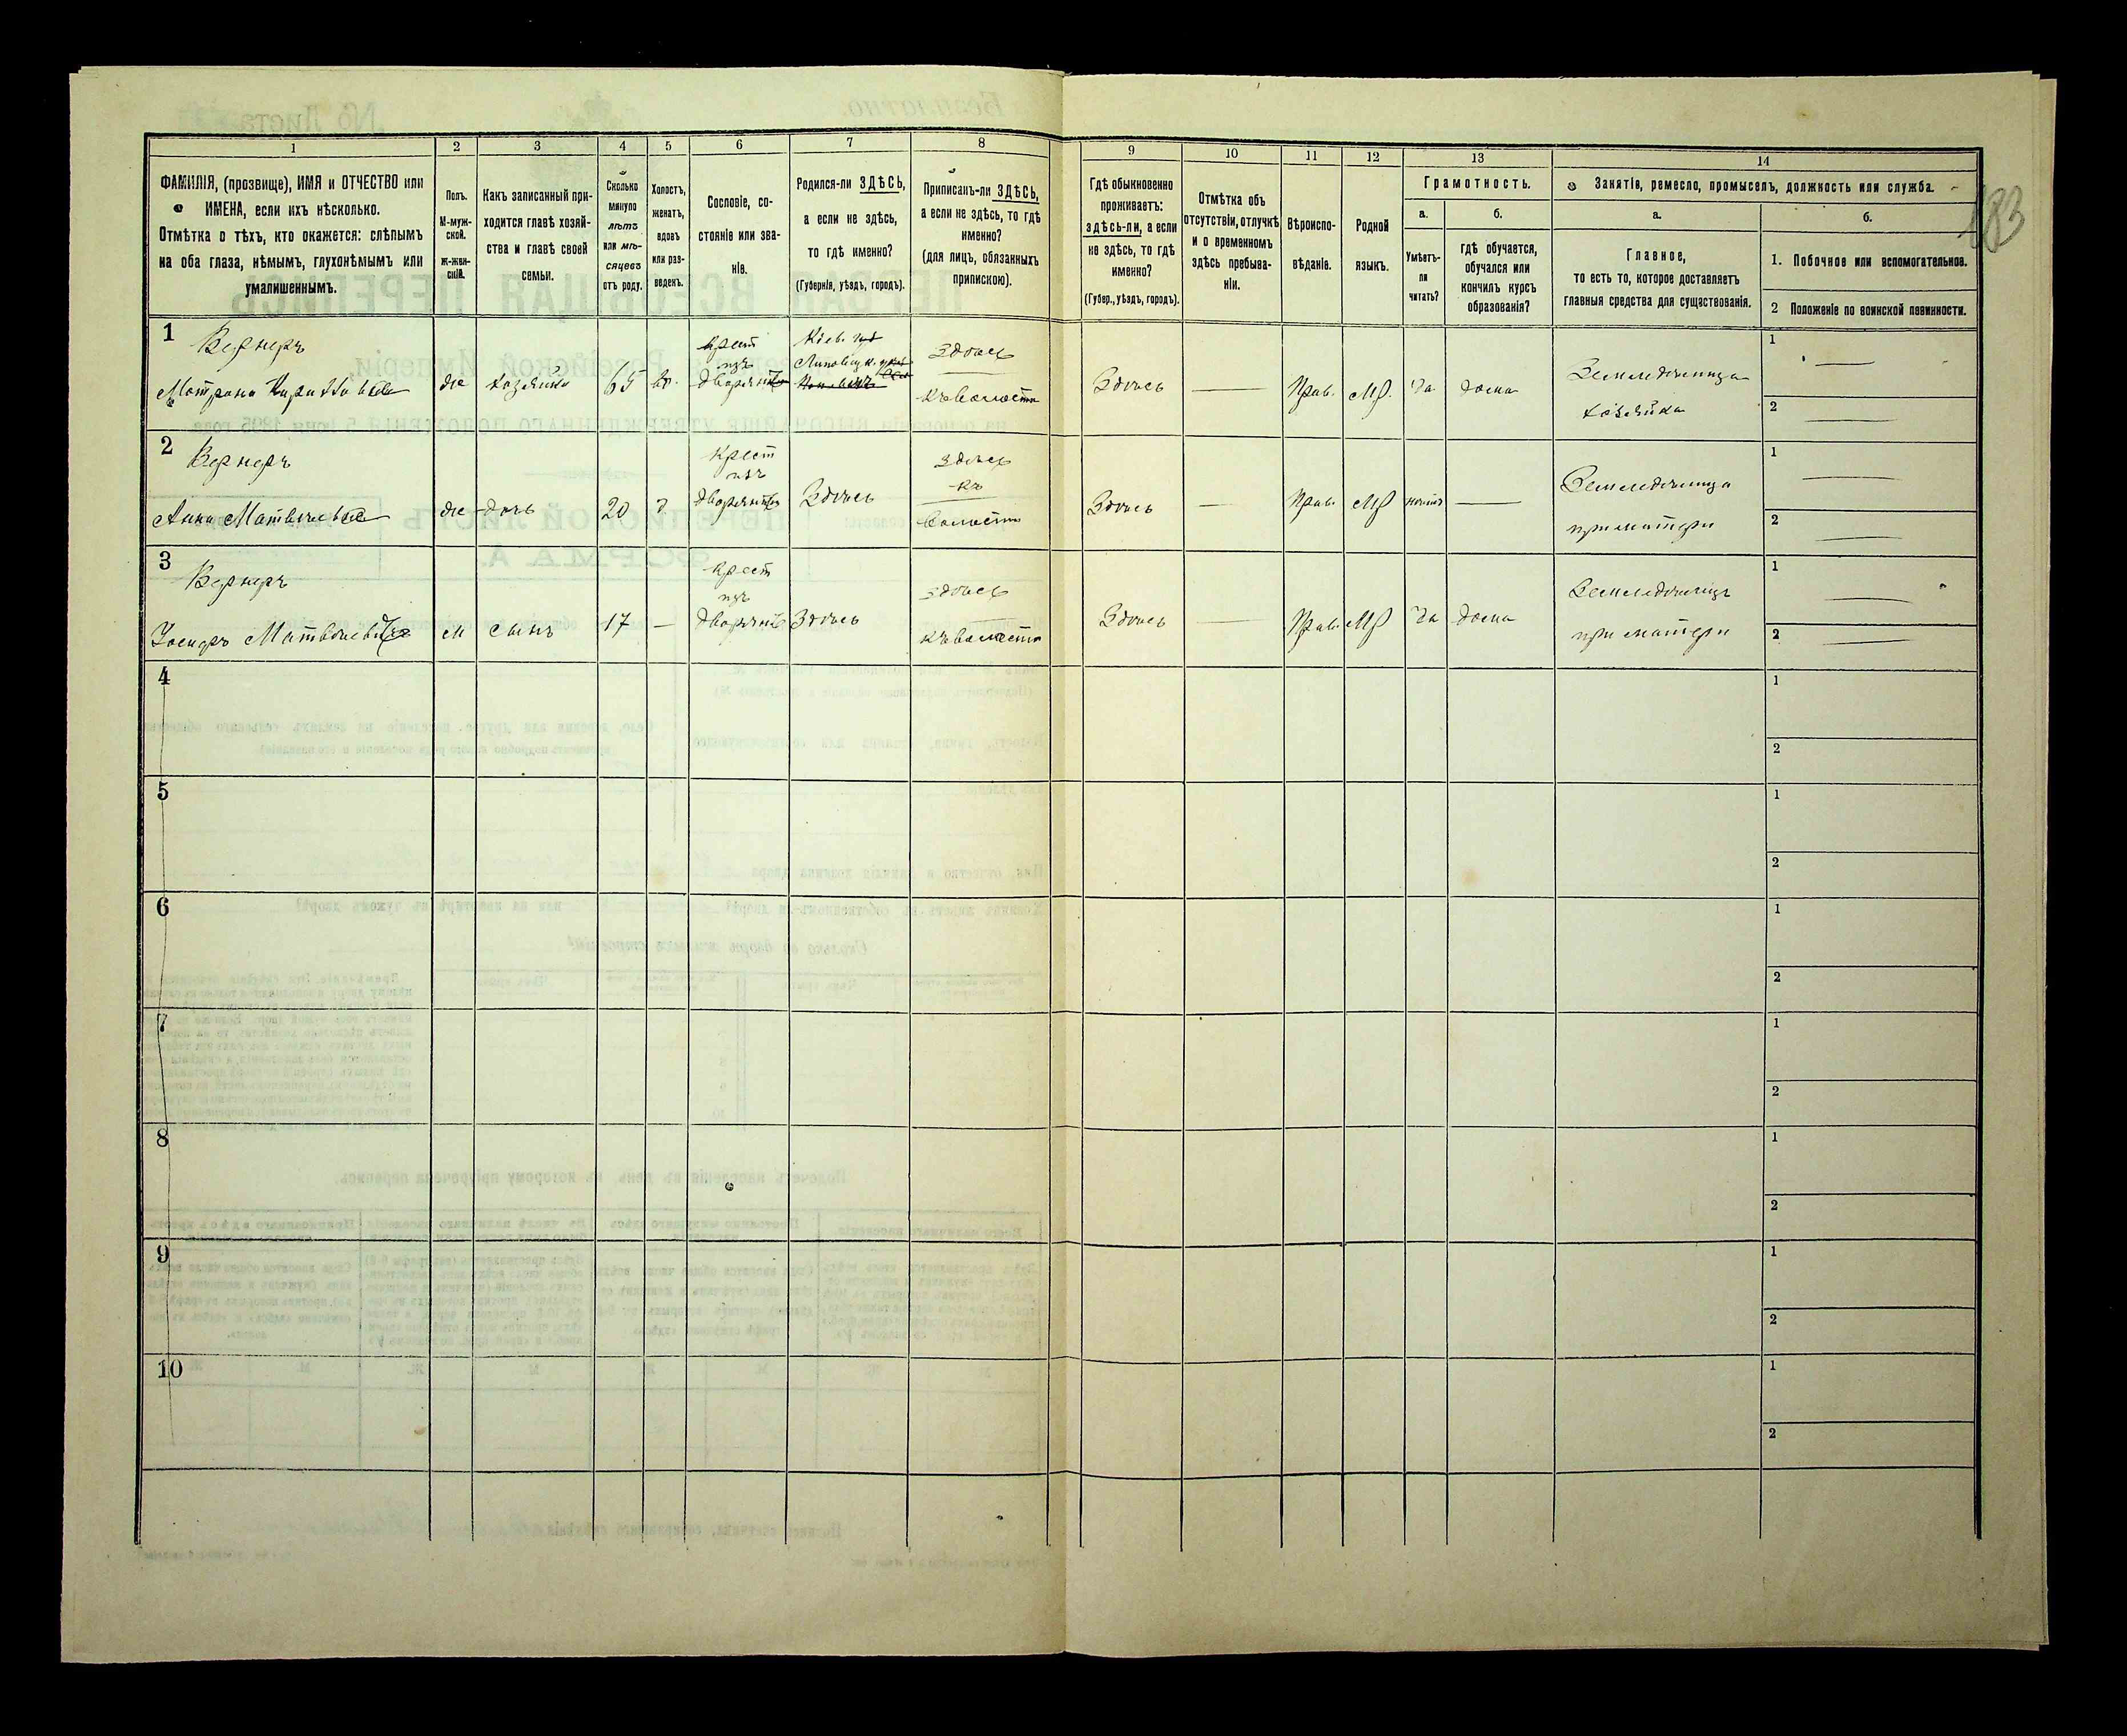 183
1
2
3
4
5
6
7
8
9
10
11
12
13
14
ФАМИЛІЯ, (прозвище), ИМЯ и ОТЧЕСТВО или
ИМЕНА, если ихъ нѣсколько.
Отмѣтка о тѣхъ, кто окажется: слѣпымъ
на оба глаза, нѣмымъ, глухонѣмымъ или
умалишеннымъ.
Полъ.
М-муж-
ской.
ж-жен-
скій.
Какъ записанный при-
ходится главѣ хозяй-
ства и главѣ своей
семьи.
Сколько
минуло
лѣтъ
или мѣ-
сяцевъ
отъ роду.
Холостъ,
женатъ,
вдовъ
или раз-
веденъ.
Сословіе, со-
стояніе или зва-
ніе.
Родился-ли ЗДѢСЬ,
а если не здѣсь,
то гдѣ именно?
(Губернія, уѣздъ, городъ).
Приписанъ-ли ЗДѢСЬ,
а если не здѣсь, то гдѣ
именно?
(для лицъ, обязанныхъ
припискою).
Гдѣ обыкновенно
проживаетъ:
здѣсь-ли, а если
не здѣсь, то гдѣ
именно?
(Губер., уѣздъ, городъ).
Отмѣтка объ
отсутствіи, отлучкѣ
и о временномъ
здѣсь пребыва-
ніи.
Вѣроиспо-
вѣданіе.
Родной
языкъ.
Грамотность.
а.
Умѣетъ-
ли
читать?
б.
гдѣ обучается,
обучался или
кончилъ курсъ
образованія?
Занятіе, ремесло, промыселъ, должность или служба.
а.
Главное,
то есть то, которое доставляетъ
главныя средства для существованія.
б.
1. Побочное или вспомогательное.
2 Положеніе по воинской повинности.
1
Вернеръ
Матрона
же
хозяйка
65
вд.
крест
изъ
дворянъ
Кіев. губ
Липовецк.
Здѣсь
къ волости
Здѣсь
Прав.
Мр.
Да
дома
Земледѣлица
хозяйка
1
2
2
Вернеръ
Анна Матвѣевна
же
дочь
20
д
крест
изъ
дворянъ
Здѣсь
здѣсь
къ
волости
Здѣсь
Прав.
Мр
нѣтъ
Земледѣлица
при матери
1
2
3
Вернеръ
Матвѣевичъ
м
сынъ
17
крест
изъ
дворянъ
Здѣсь
здѣсь
къ волости
Здѣсь
Прав.
Мр
Да
дома
Земледѣлецъ
при матери
1
2
4
1
2
5
1
2
6
1
2
7
1
2
8
1
2
9
1
2
10
1
2